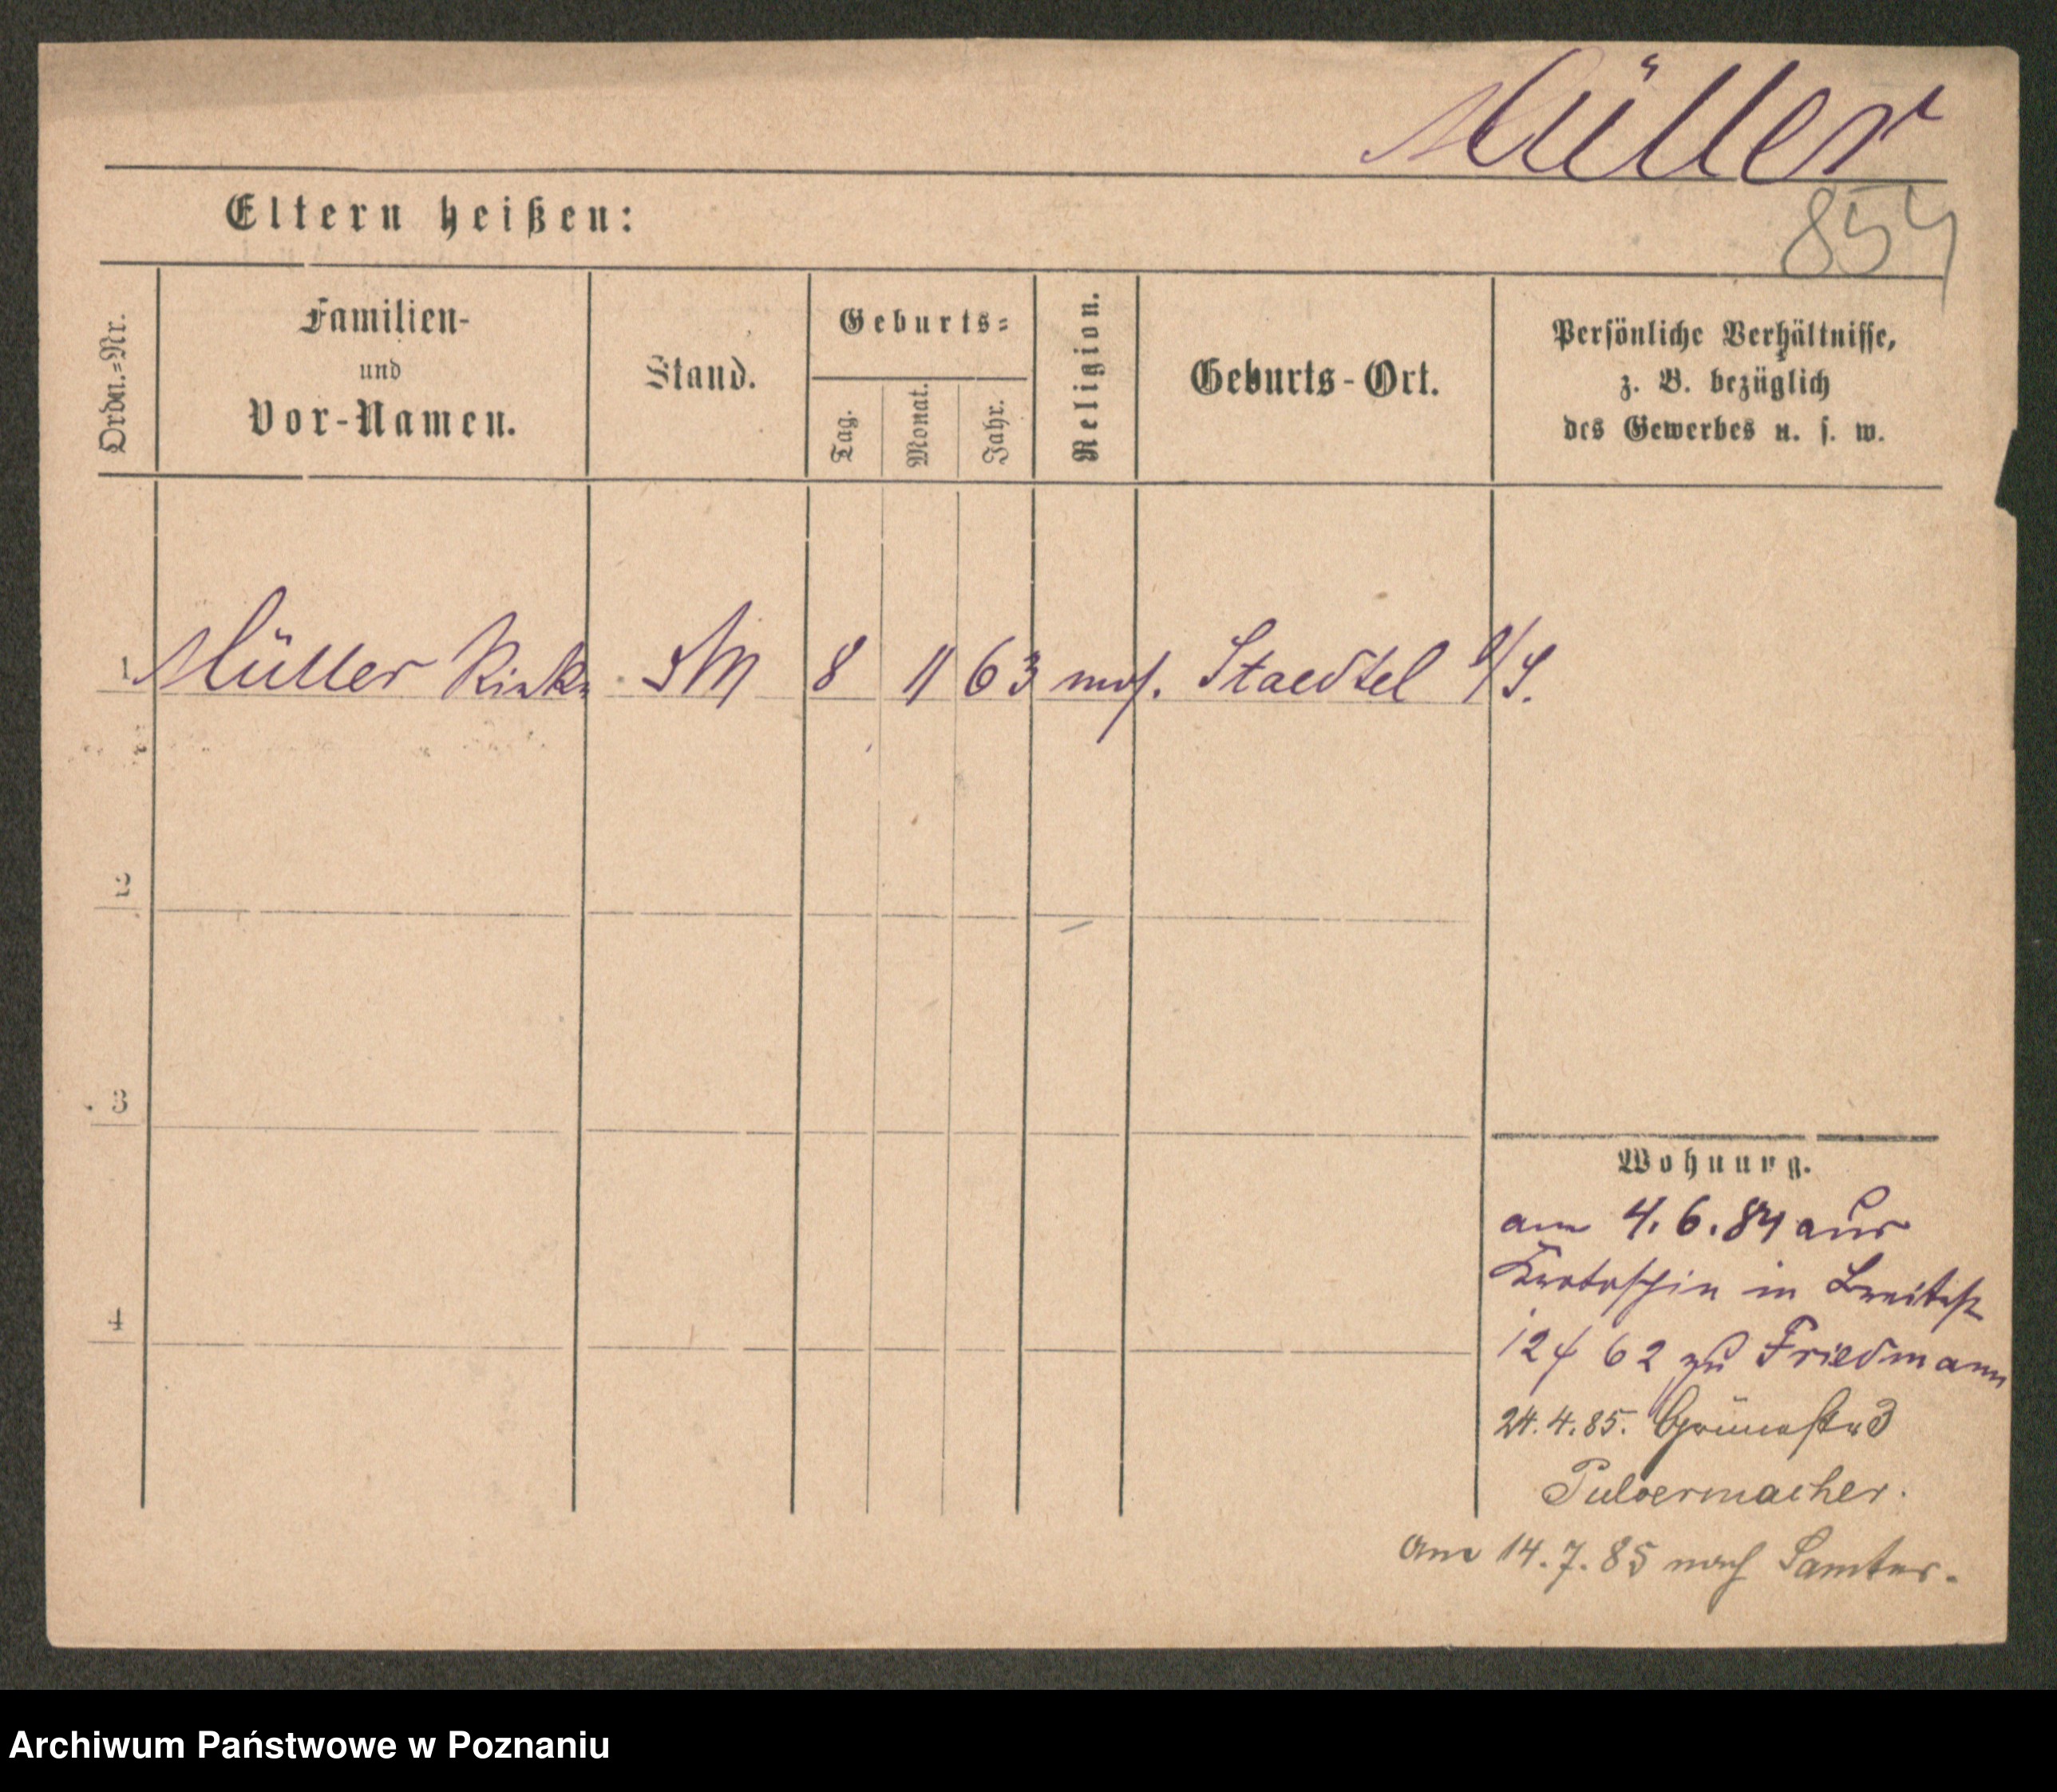 Müller
Eltern heißen:
854
Ordn.=Nr.
Familien-
und
Vor-Namen.
Stand.
Geburts=
Tag.
Monat.
Jahr.
Religion.
Geburts-Ort.
Persönliche Verhältnisse,
z. B. bezüglich
des Gewerbes u. s. w.
1 Müller 8 11 63 mos. Staedtel O/S.
2
3
4
Wohnung.
am 4.6.84 aus
Krotoschin in Breitestr
12 62 zu Friedmann
24.4.85. Grünestr 3
Pulvermacher.
am 14.7.85 nach Samter.
Archiwum Państwowe w Poznaniu